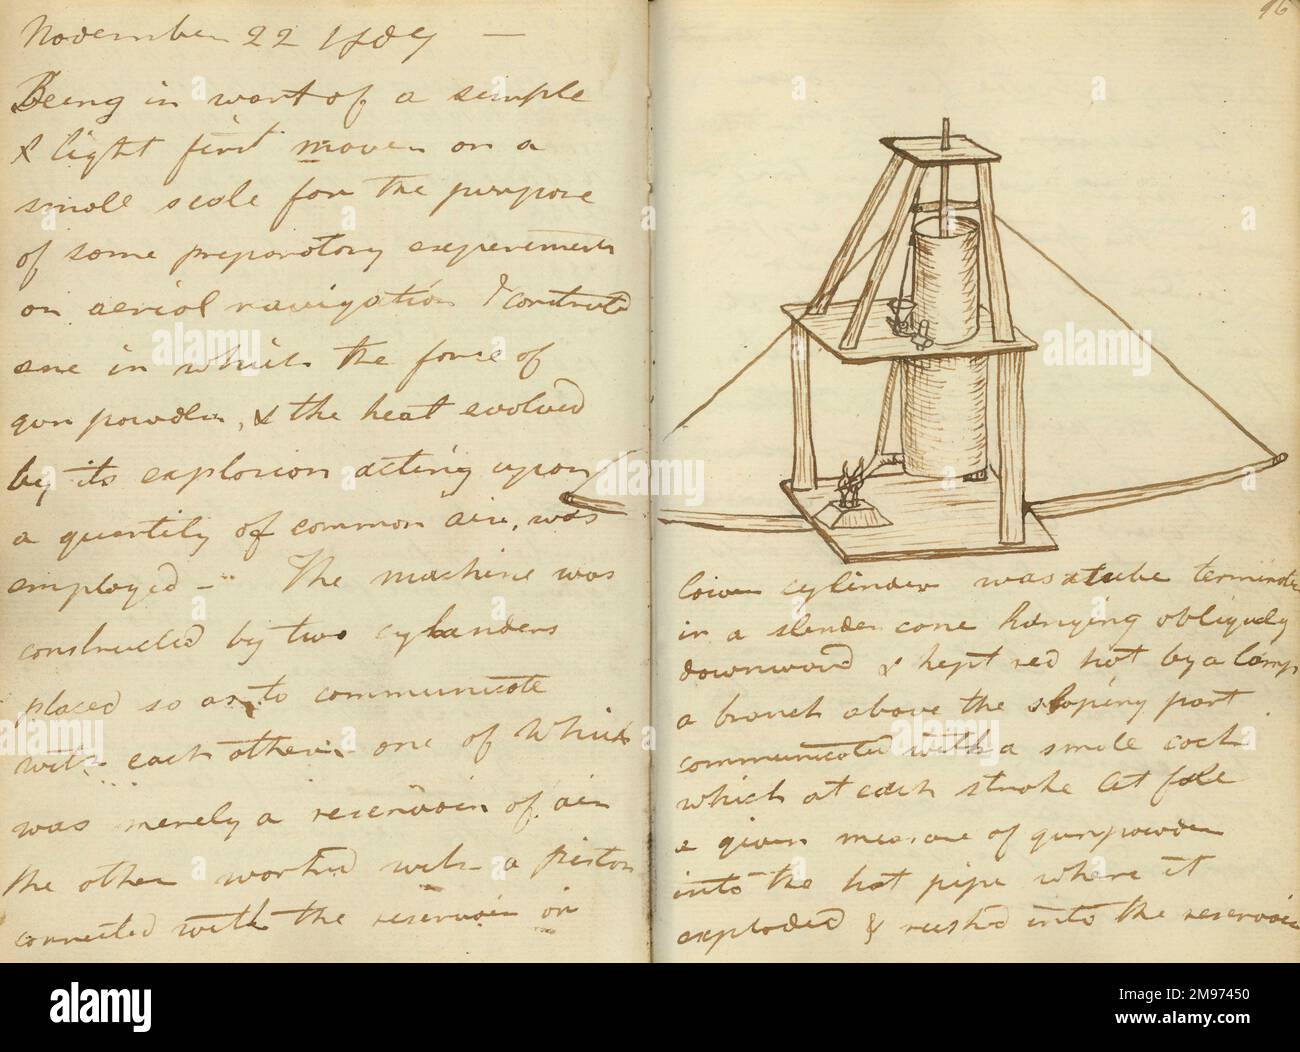 November 22 1807 —
Being in want of a simple
& light first mover on a
small scale for the purpose
of some preparatory experements
on aerial navigation I constructed
one in which the force of
gun powder, & the heat evolved
by its explosion acting upon
a quantity of common air, was
employed — The machine was
constructed by two cylanders
placed so as to communicate
with each other one of which
was merely a reservoir of air
the other worked with a piston
connected with the reservoir or
96
lower cylinder was a tube terminate
in a slender cone hanging obliquely
downward & kept red hot by a lamp
a branch above the sloping part
communicated with a small cock
which at each stroke let fall
a given measure of gunpowder
into the hot pipe where it
exploded & rushed into the reservoir
alamy
Image ID: 2M97450
www.alamy.com